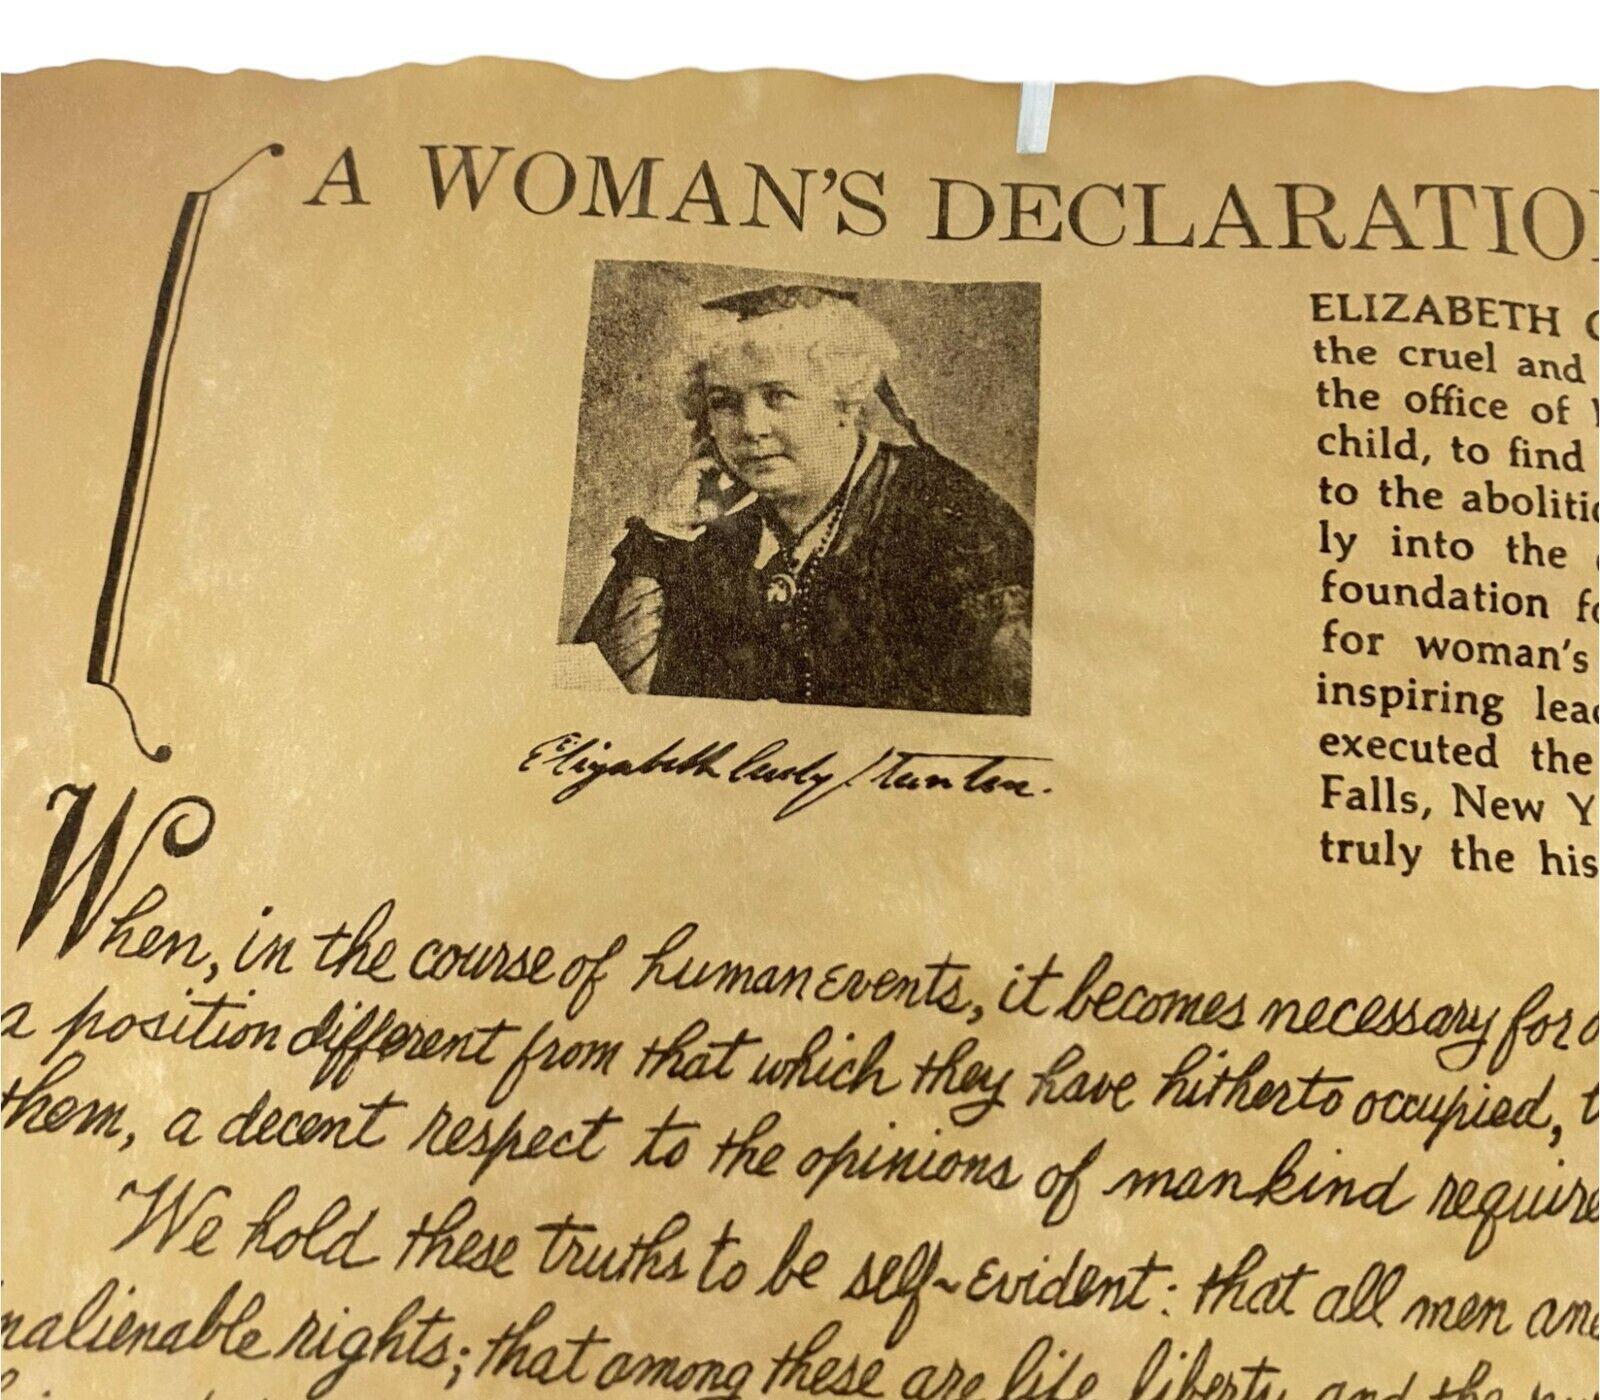 A WOMAN'S DECLARATIO
ELIZABETH
the cruel and
the office of
child, to find
to the abolitio
ly into the
foundation fo
for woman's
inspiring lea
executed the
Falls, New Y
truly the his
Elizabeth Cady Stanton.
When, in the course of human events, it becomes necessary for
a position different from that which they have hitherto occupied,
them, a decent respect to the opinions of mankind require
We hold these truths to be self-evident: that all men an
nalienable rights; that among these are life, liberty, and the